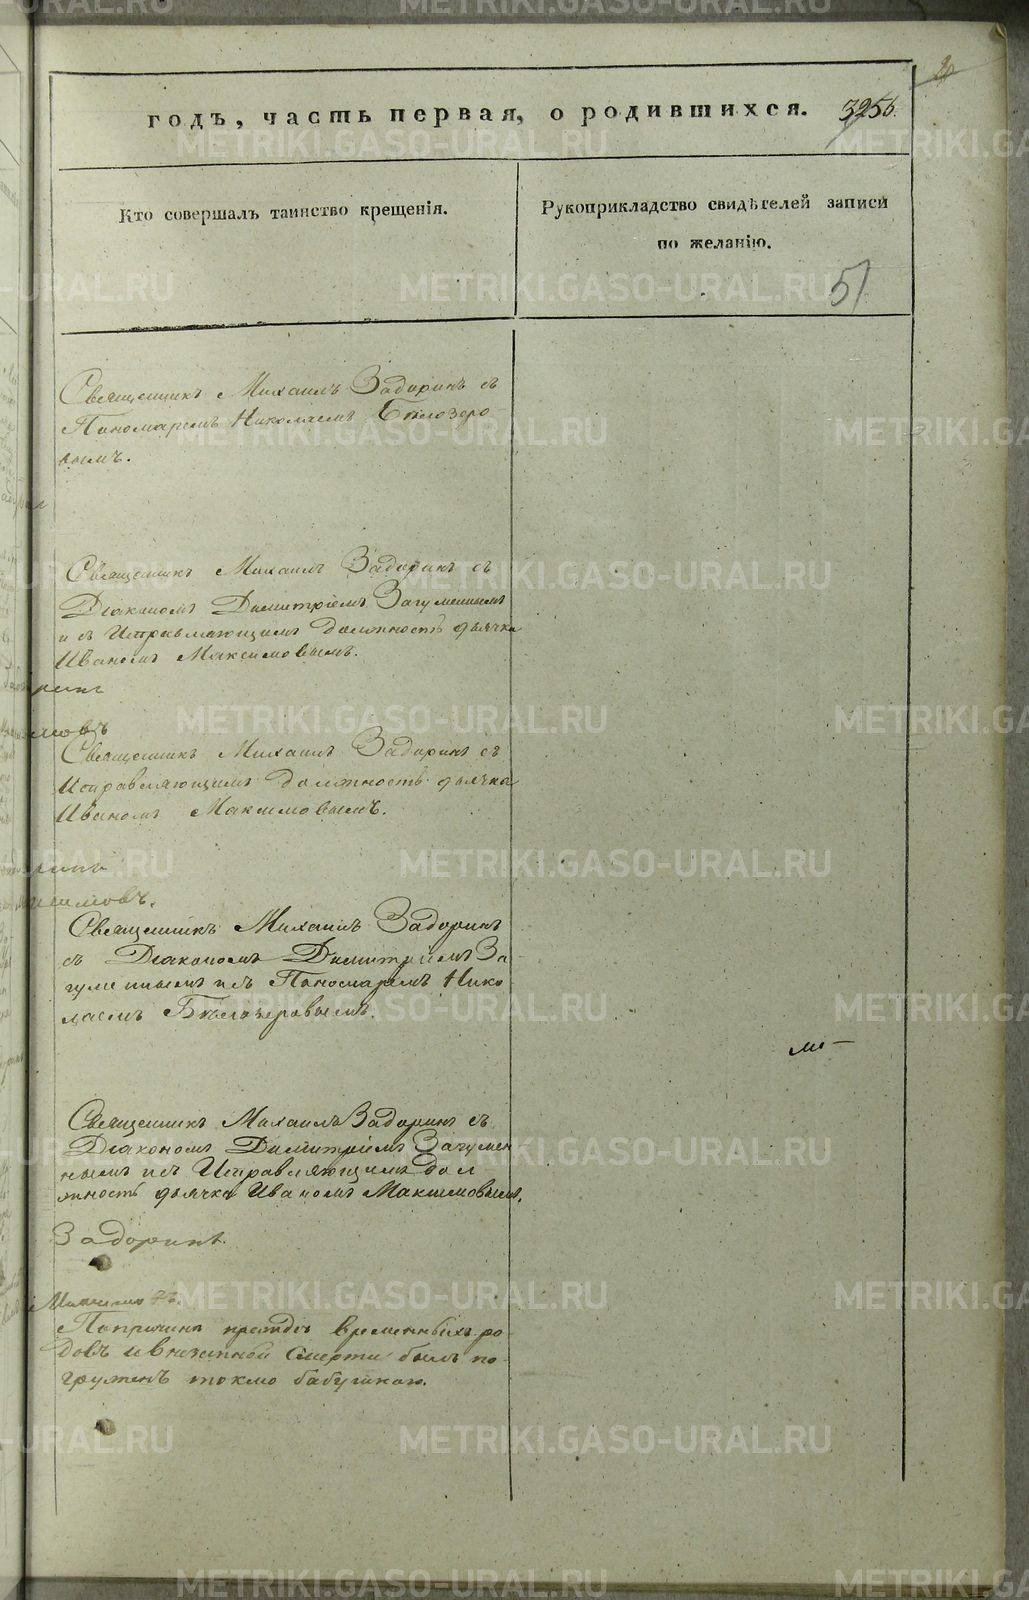 годъ, часть первая, о родившихся.
325б.
Кто совершалъ таинство крещенія.
Рукоприкладство свидѣтелей записи
по желанію.
51
Священникъ Михаилъ Задоринъ съ
Пономаремъ Николаемъ Бѣлозеро
вымъ.
Священникъ Михаилъ Задоринъ съ
Діакономъ Димитріемъ Загуменнымъ
и съ Исправляющимъ должность дьячка
Иваномъ Максимовымъ.
Священникъ Михаилъ Задоринъ съ
Исправляющимъ должность дьячка
Иваномъ Максимовымъ.
Священникъ Михаилъ Задоринъ
съ Діакономъ Димитріемъ За
гуменнымъ и съ Пономаремъ Нико
лаемъ Бѣлозеровымъ.
Священникъ Михаилъ Задоринъ съ
Діакономъ Димитріемъ Загумен
нымъ и съ Исправляющимъ дол
жность дьячка Иваномъ Максимовымъ.
Задоринъ.
Максимовъ.
Попричинѣ прежде временныхъ ро
довъ и внезапной смерти былъ по
груженъ токмо бабушкою.
METRIKI.GASO-URAL.RU